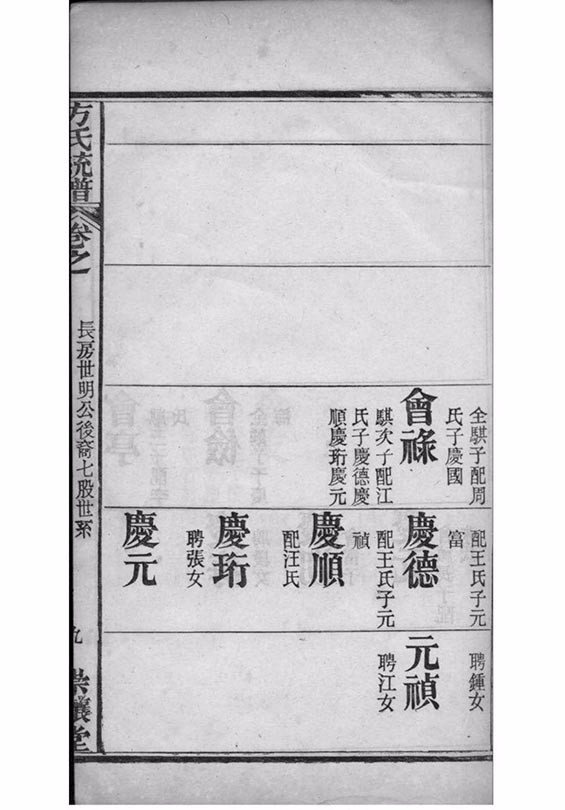 全騏子配周
氏子慶國
會祿
騏次子配江
氏子慶德慶
順慶珩慶元
配王氏子元
富
慶德
配王氏子元
禎
慶順
配汪氏
慶珩
聘張女
慶元
聘鍾女
元禎
聘江女
方氏統譜
卷之
長房世明公後裔七股世系
九